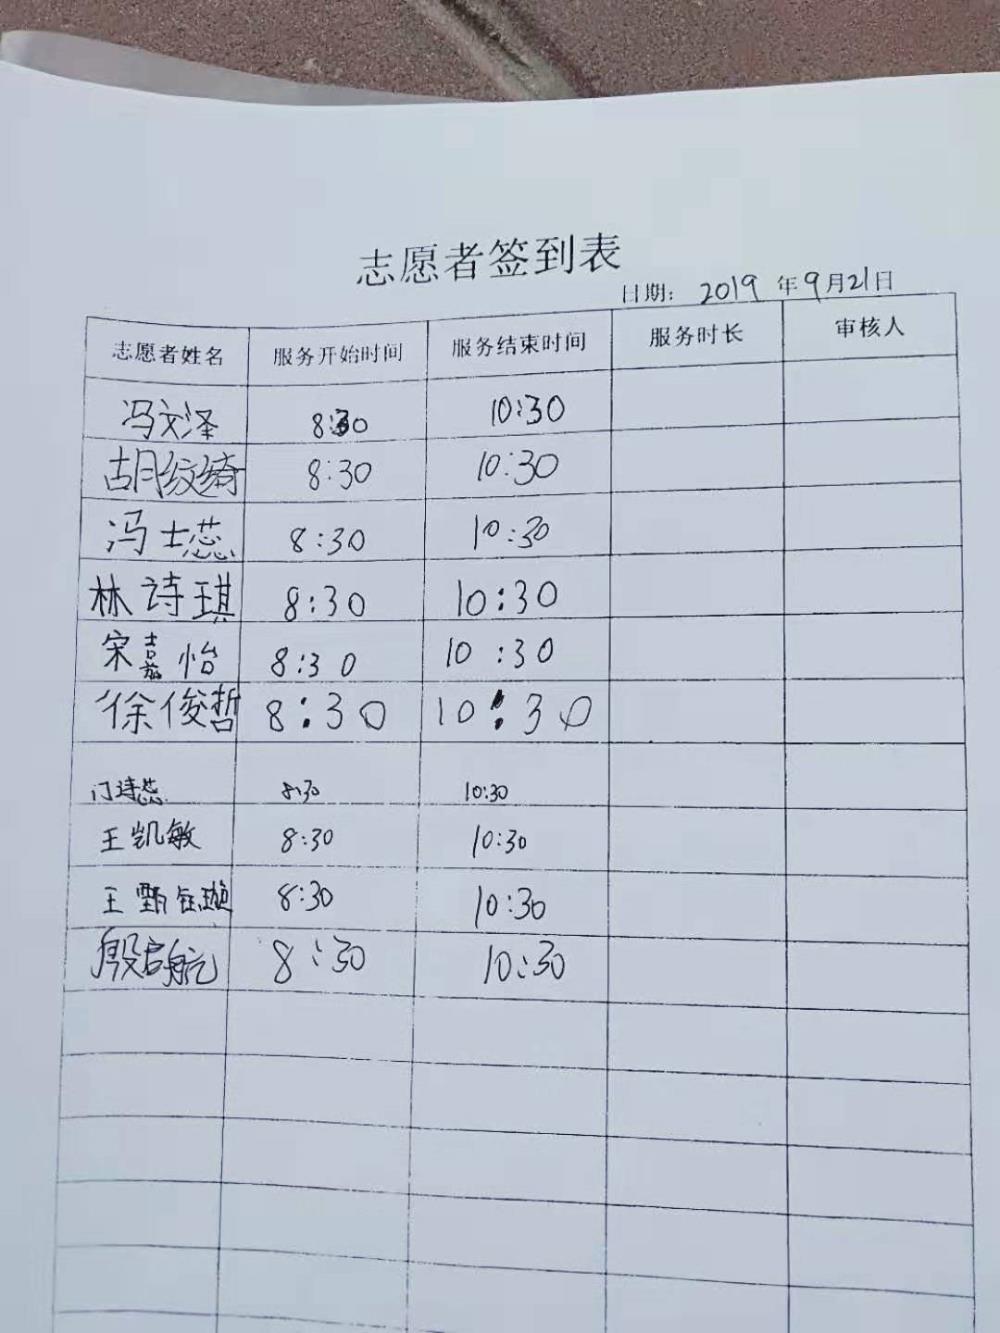 志愿者签到表
日期: 2019 年 9月21日
志愿者姓名 服务开始时间 服务结束时间 服务时长 审核人
冯文泽 8:30 10:30
胡纹绮 8:30 10:30
冯士蕊 8:30 10:30
林诗琪 8:30 10:30
宋嘉怡 8:30 10:30
徐俊哲 8:30 10:30
门诗蕊 8:30 10:30
王凯敏 8:30 10:30
王甄钰璇 8:30 10:30
殷启航 8:30 10:30